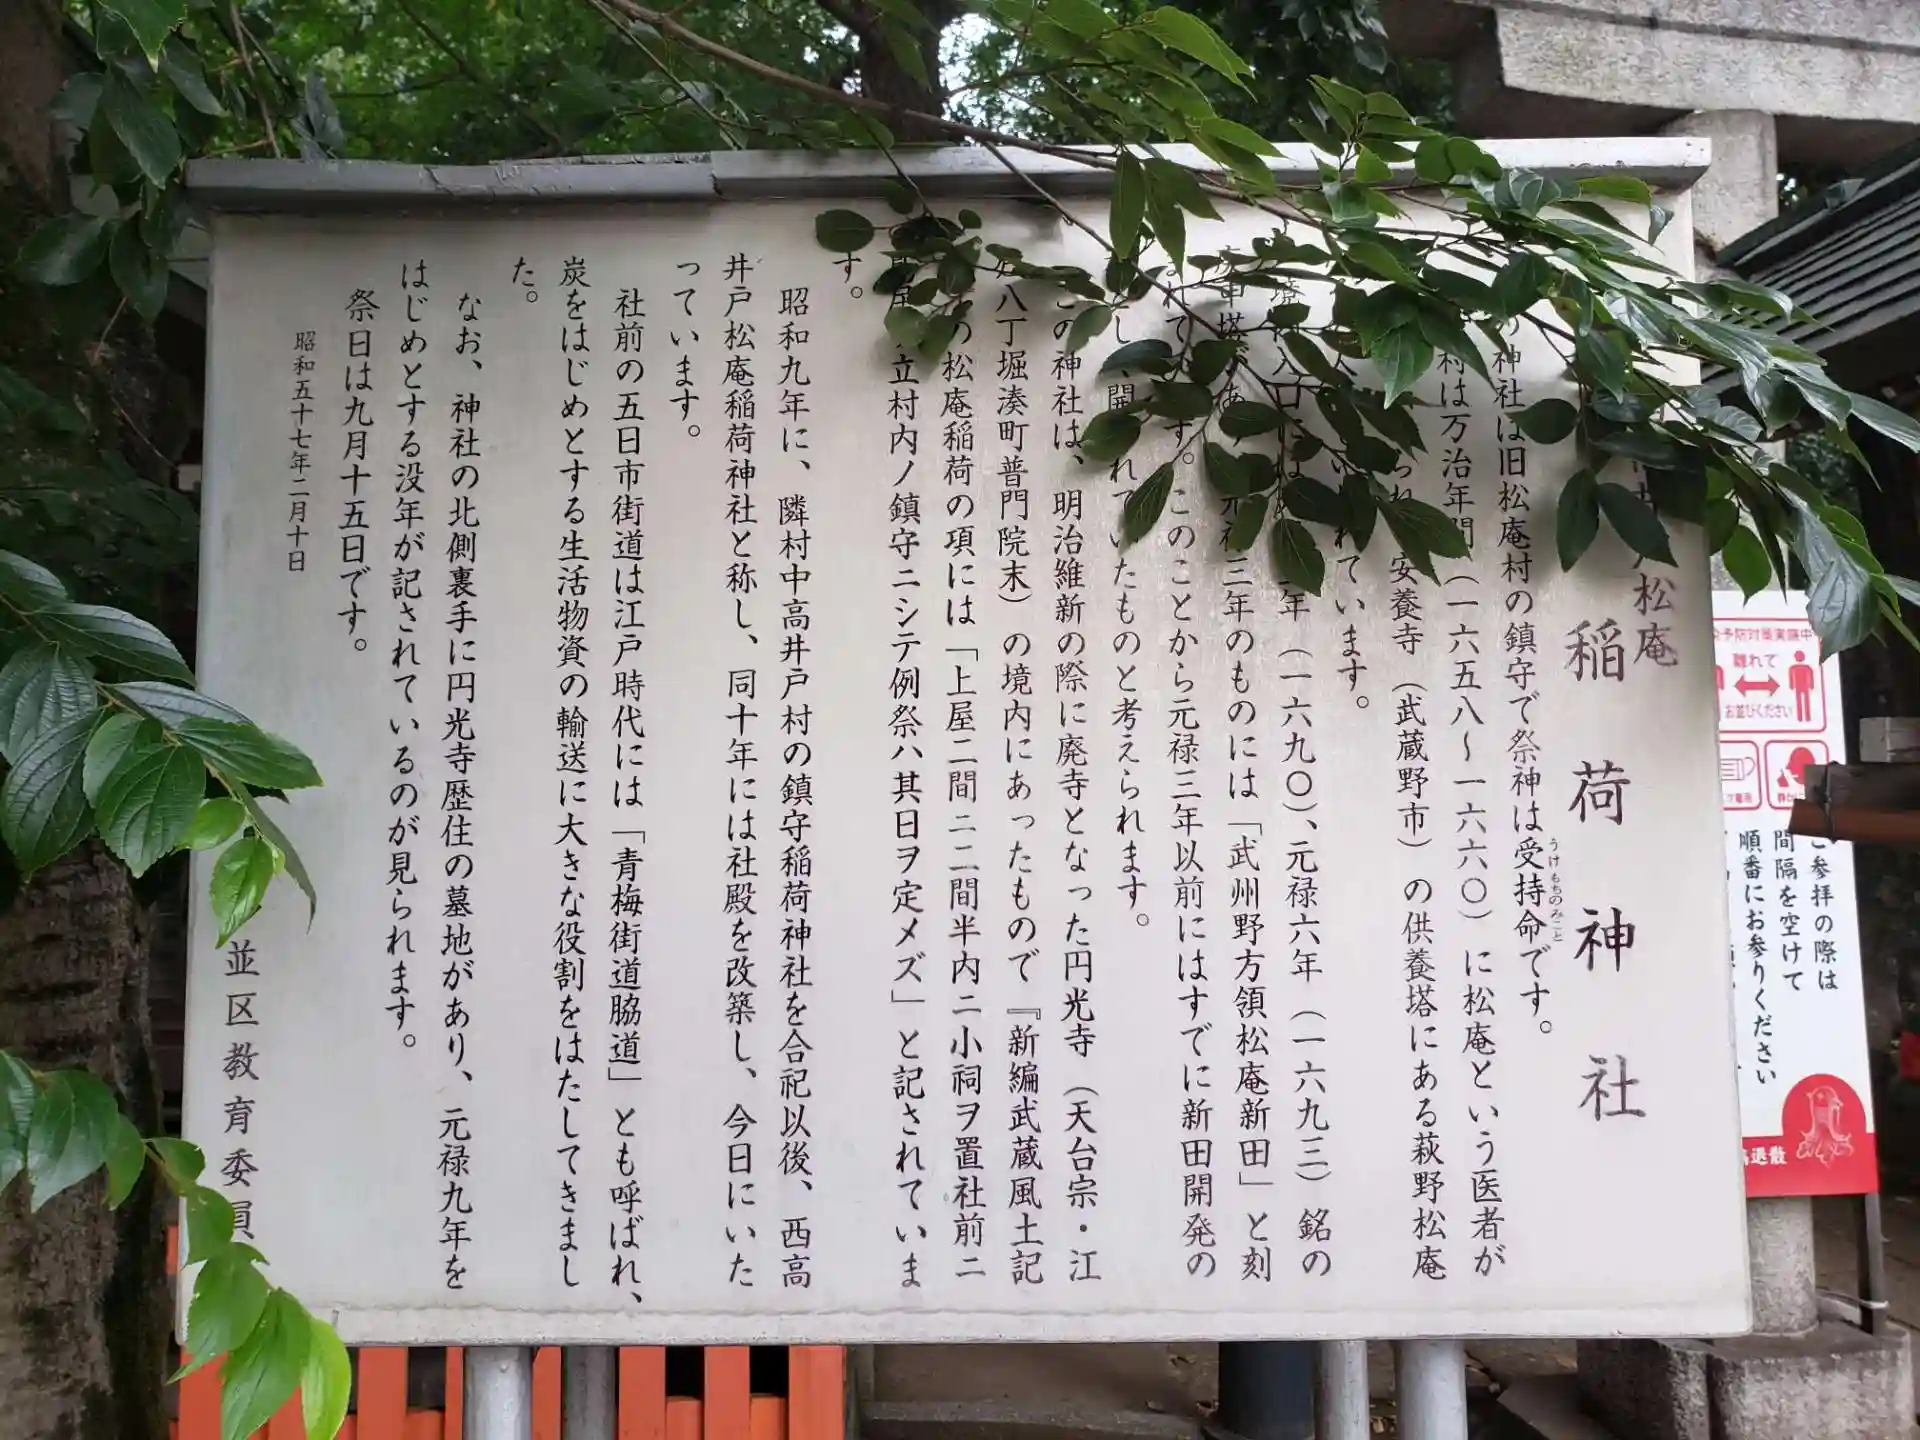 松庵
稲荷神社
神社は旧松庵村の鎮守で祭神は受持命です。
うけもちのみこと
村は万治年間(一六五八〜一六六〇)に松庵という医者が
安養寺(武蔵野市)の供養塔にある萩野松庵
れています。
年(一六九〇)、元禄六年(一六九三)銘の
三年のものには「武州野方領松庵新田」と刻
れて す。このことから元禄三年以前にはすでに新田開発の
し、開 れていたものと考えられます。
この神社は、明治維新の際に廃寺となった円光寺(天台宗・江
八丁堀湊町普門院末)の境内にあったもので『新編武蔵風土記
の松庵稲荷の項には「上屋二間ニ二間半内ニ小祠ヲ置社前ニ
立村内ノ鎮守ニシテ例祭ハ其日ヲ定メズ」と記されていま
す。
昭和九年に、隣村中高井戸村の鎮守稲荷神社を合祀以後、西高
井戸松庵稲荷神社と称し、同十年には社殿を改築し、今日にいた
っています。
社前の五日市街道は江戸時代には「青梅街道脇道」とも呼ばれ、
炭をはじめとする生活物資の輸送に大きな役割をはたしてきまし
た。
なお、神社の北側裏手に円光寺歴住の墓地があり、元禄九年を
はじめとする没年が記されているのが見られます。
祭日は九月十五日です。
昭和五十七年二月十日
並区教育委員
予防対策実施中
離れて
お並びください
ご参拝の際は
間隔を空けて
順番にお参りください
退散